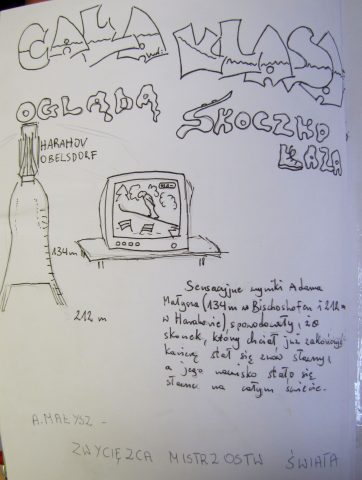 CAŁA KLASA
OGLĄDA SKOCZKO
ŁAZA
HARAHOV
OBELSDORF
134m
212 m
Sensacyjne wyniki Adama
Małysza (134m w Bischoshofen i 212m
w Harahovie), spowodowały, że
skoczek, który chciał już zakończyć
karierę stał się znów sławny,
a jego nazwisko stało się
sławne na całym świecie.
A.MAŁYSZ -
ZWYCIĘZCA MISTRZOSTW ŚWIATA